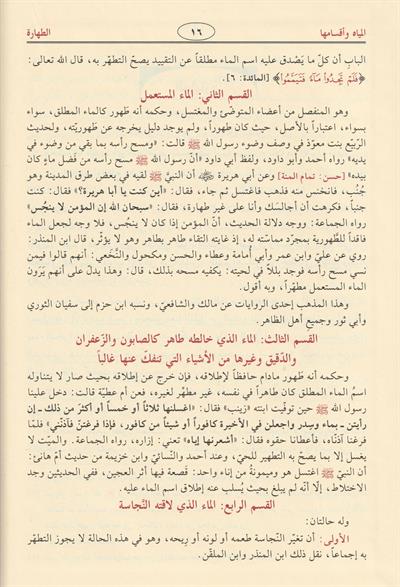 المياه وأقسامها ١٦ الطهارة
الباب أن كلّ ما يَصْدق عليه اسم الماء مطلقاً عن التقييد يصحّ التطهّر به، قال الله تعالى:
﴿فَلَمْ تَجِدُوا مَاءً فَتَيَمَّمُوا﴾ [المائدة: ٦].
القسم الثاني: الماء المستعمل
وهو المنفصل من أعضاء المتوضّئ والمغتسل، وحكمه أنه طَهور كالماء المطلق، سواء
بسواء، اعتباراً بالأصل، حيث كان طهوراً، ولم يوجد دليل يخرجه عن طهوريّته، ولحديث
الرُّبيّع بنت معوّذ في وصف وضوء رسول الله ﷺ قالت: «ومسح رأسه بما بقي من وضوء في
يديه» رواه أحمد وأبو داود، ولفظ أبي داود «أنّ رسول الله ﷺ مسح رأسه من فَضل ماءٍ كان
بيده» [حسن: تمام المنة] وعن أبي هريرة ﷺ أن النبيَّ ﷺ لقيه في بعض طرق المدينة وهو
جُنُب، فانخنس منه فذهب فاغتسل ثم جاء، فقال: «أين كنت يا أبا هريرة؟» فقال: كنت
جنباً، فكرهت أن أجالسَك وأنا على غير طهارة، فقال: «سبحان الله إن المؤمن لا ينجُس»
رواه الجماعة: ووجه دلالة الحديث، أنّ المؤمن إذا كان لا ينجُس، فلا وجه لجعل الماء
فاقداً للطَّهورية بمجرّد مماسّته له، إذ غايته التقاء طاهر بطاهر وهو لا يؤثّر، قال ابن المنذر:
روي عن عليّ وابن عمر وأبي أُمامة وعطاء والحسن ومكحول والنَّخعي: أنهم قالوا فيمن
نسي مسح رأسه فوجد بللاً في لحيته: يكفيه مسحه بذلك، قال: وهذا يدلّ على أنهم يَرَون
الماء المستعمل مطهِّراً، وبه أقول.
وهذا المذهب إحدى الروايات عن مالك والشافعيّ، ونسبه ابن حزم إلى سفيان الثوري
وأبي ثور وجميع أهل الظاهر.
القسم الثالث: الماء الذي خالطه طاهر كالصابون والزّعفران
والدّقيق وغيرها من الأشياء التي تنفكّ عنها غالباً
وحكمه أنه طهور مادام حافظاً لإطلاقه، فإن خرج عن إطلاقه بحيث صار لا يتناوله
اسمُ الماء المطلق كان طاهراً في نفسه، غير مطهّر لغيره، فعن أم عطيّة قالت: دخل علينا
رسول الله ﷺ حين توفّيت ابنته «زينب» فقال: «اغسلنها ثلاثاً أو خمساً أو أكثرَ من ذلك ـ إن
رأيتن ـ بماء وسِدر واجعلن في الأخيرة كافوراً أو شيئاً من كافور، فإذا فرغتنّ فآذنّني» فلمّا
فرغنا آذنّاه، فأعطانا حقوه فقال: «أشعرنها إياه» تعني: إزاره، رواه الجماعة. والميّت لا
يغسل إلا بما يصحّ به التطهير للحيّ، وعند أحمد والنَّسائيّ وابن خزيمة من حديث أمّ هانئ:
أن النبيَّ ﷺ اغتسل هو وميمونةُ من إناء واحد: قَصعة فيها أثر العجين، ففي الحديثين وجد
الاختلاط، إلّا أنّه لم يبلغ بحيث يُسلب عنه إطلاق اسم الماء عليه.
القسم الرابع: الماء الذي لاقته النَّجاسة
وله حالتان:
الأولى: أن تغيّر النّجاسة طعمه أو لونه أو ريحه، وهو في هذه الحالة لا يجوز التطهّر
به إجماعاً، نقل ذلك ابن المنذر وابن الملقّن.